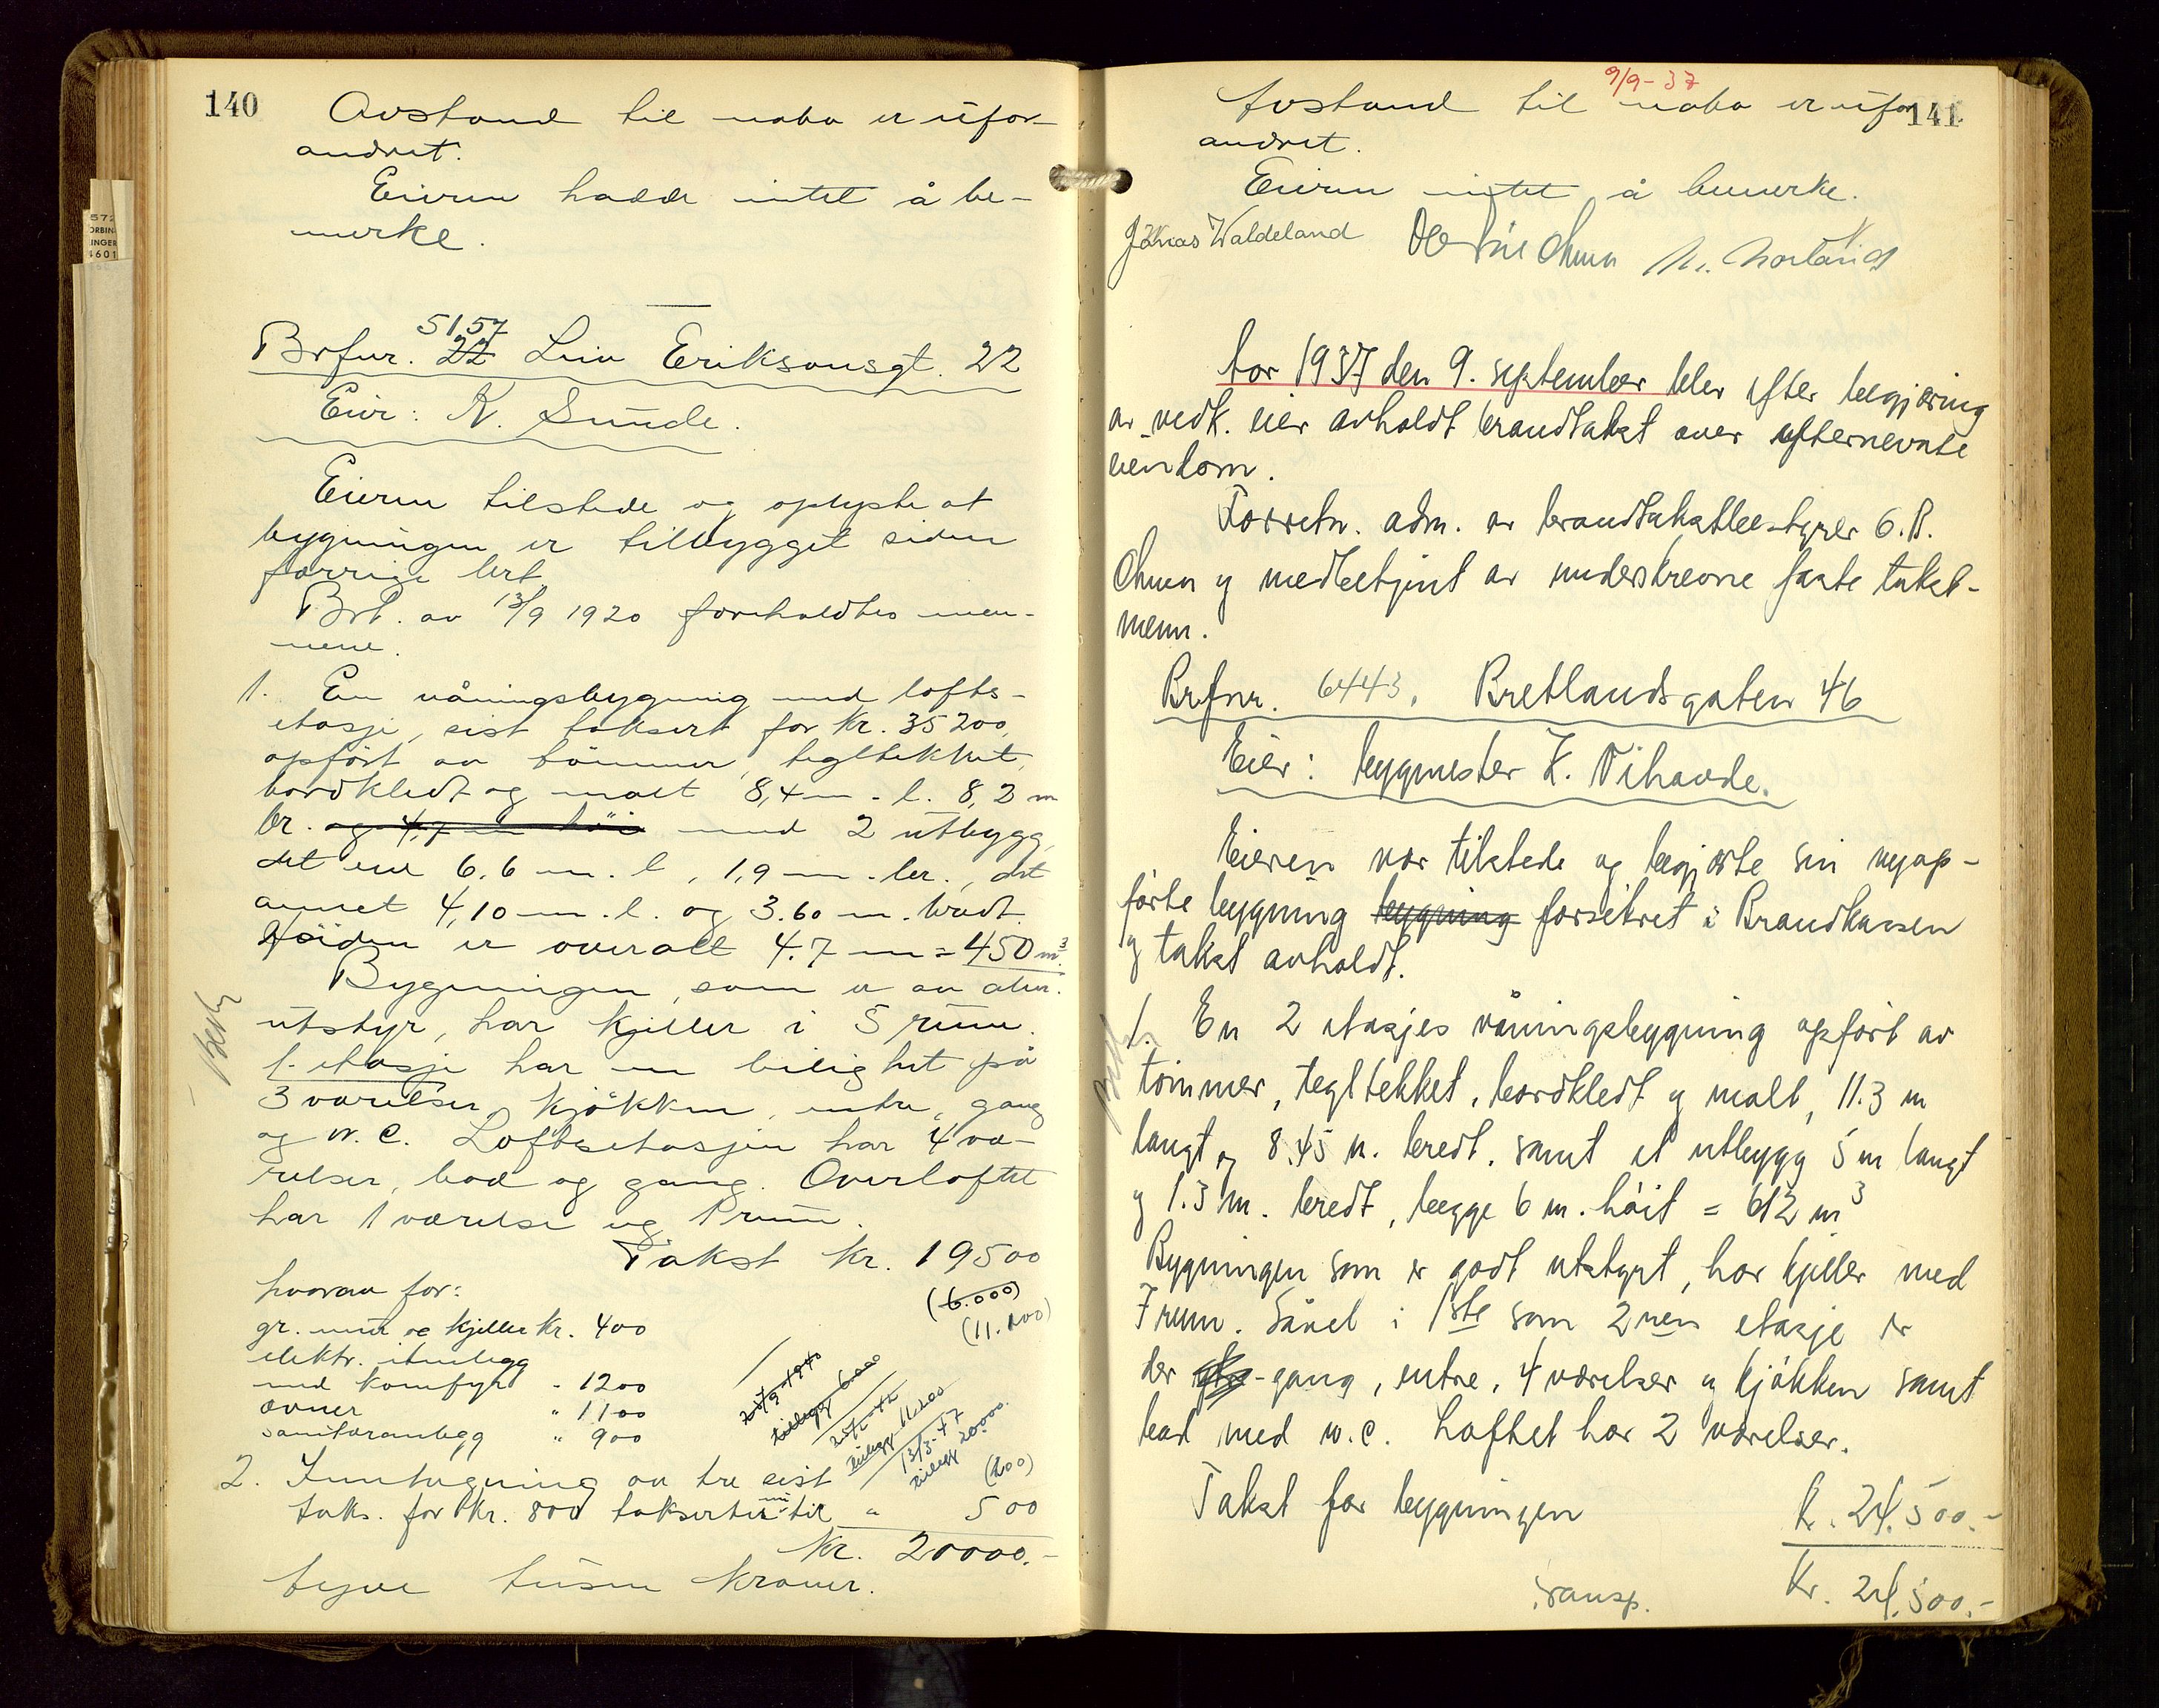 140
Avstand til nabo er ufor-
andret.
Eieren hadde intet å be-
merke.
5157
Brfnr. 22 Leiv Eriksonsgt. 22
Eier: K. Sunde.
Eieren tilstede og oplyste at
bygningen er tilbygget siden
forrige brt.
Brt. av 13/9 1920 foreholdtes men-
nene.
1. En våningsbygning med lofts-
etasje, sist taksert for kr. 35200,
opført av tömmer, tegltekket,
bordkledt og malt 8,4 m. l. 8,2 m
br. og 4,7 m höi med 2 utbygg,
det ene 6,6 m. l, 1,9 m. br., det
annet 4,10 m. l. og 3.60 m. bredt.
Höiden er overalt 4.7 m = 450 m³.
Bygningen, som er av alm.
utstyr, har kjeller i 5 rum.
1. etasje har en leilighet på
3 værelser, kjökken, entre, gang
og w. c. Loftsetasjen har 4 væ-
relser, bod og gang. Overloftet
har 1 værelse og 1 rum.
Takst kr. 19500
(6.000)
hvorav for:
gr. mur og kjeller kr. 400
elektr. innlegg
med komfyr - 1200
ovner " 1100
sanitæranlegg " 900
25/2-42
13/3-47
tillegg 20000.
2. Innhegning av tre sist
taks. for kr. 800 til " 500
kr. 20000.-
tyve tusen kroner.
9/9-37
141
Avstand til nabo er ufor
andret.
Eieren intet å bemerke.
Jonas Waldeland N. Norland
Aar 1937 den 9. september blev efter begjæring
av vedk. eier avholdt brandtakst over efternevnte
eiendom.
Forretn. adm. av brandtakstbestyrer O. B.
Omen og medbetjent av underskrevne faste takst-
menn.
Brfnr. 6443. Bretlandsgaten 46
Eier: bygmester K. Vihavde.
Eieren var tilstede og begjærte sin nyop-
förte bygning bygning forsikret i Brandkassen
og takst avholdt.
1. En 2 etasjes våningsbygning opfört av
tömmer, tegltekket, bordkledt og malt, 11.3 m
langt og 8.45 m. bredt, samt et utbygg 5 m langt
og 1.3 m. bredt, begge 6 m. höit = 612 m³
Bygningen som er godt utstyrt, har kjeller med
7 rum. Såvel i 1ste som 2nen etasje er
der gang, entre, 4 værelser og kjökken samt
bad med w.c. Loftet har 2 værelser.
Takst for bygningen
kr. 24.500.-
Transp. kr. 24.500.-